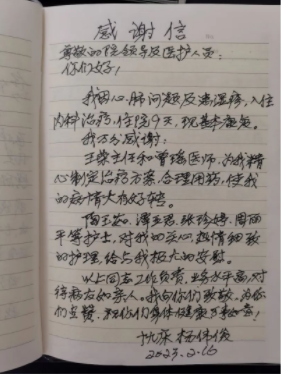 感谢信
尊敬的院领导及医护人员:
你们好!
我因心肺问题及患湿疹,入住
内科治疗,住院9天,现基本康复。
我万分感谢:
王荣主任和曹璐医师,为我精
心制定治疗方案,合理用药,使我
的病情大有好转。
陶玉茹、谭亚思、张珍婷、周丽
平等护士,对我的关心、热情细致
的护理,给与我极大的安慰。
以上同志工作负责,业务水平高,对
待病友如亲人。我向你们致敬,为你
们点赞,祝你们身体健康万事如意!
杨伟俊
2023.2.16